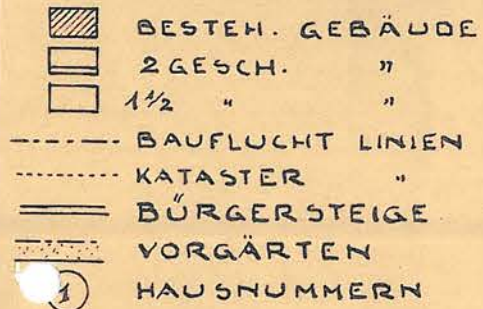 BESTEH. GEBÄUDE
2 GESCH. "
1 1/2 " "
BAUFLUCHT LINIEN
KATASTER "
BÜRGERSTEIGE
VORGÄRTEN
1 HAUSNUMMERN